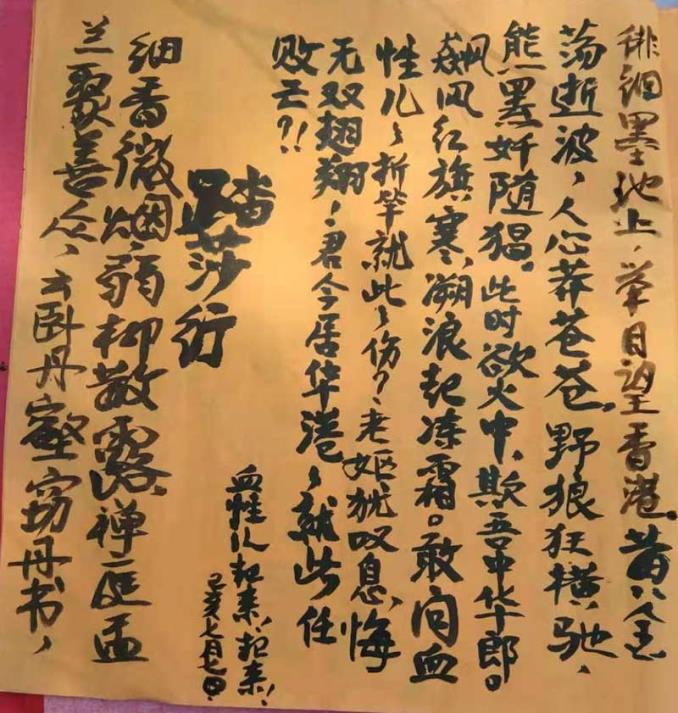 徘徊墨池上，举目望香港。黄金
荡逝波，人心莽苍苍。野狼狂横驰、
熊罴奸随猖。此时欲火中、欺吾中华郎。
飙风红旗寒、溯浪起冻霜。敢问血
性儿、折毕就此、伤？老妪犹叹息、悔
无双翅翔，君今居华港、就此任
败亡?!!
血性儿起来！起来！
己亥七月七日
踏莎行
细香微烟、弱柳散露、禅庭盂
兰聚善众、云卧丹壑窈丹书、